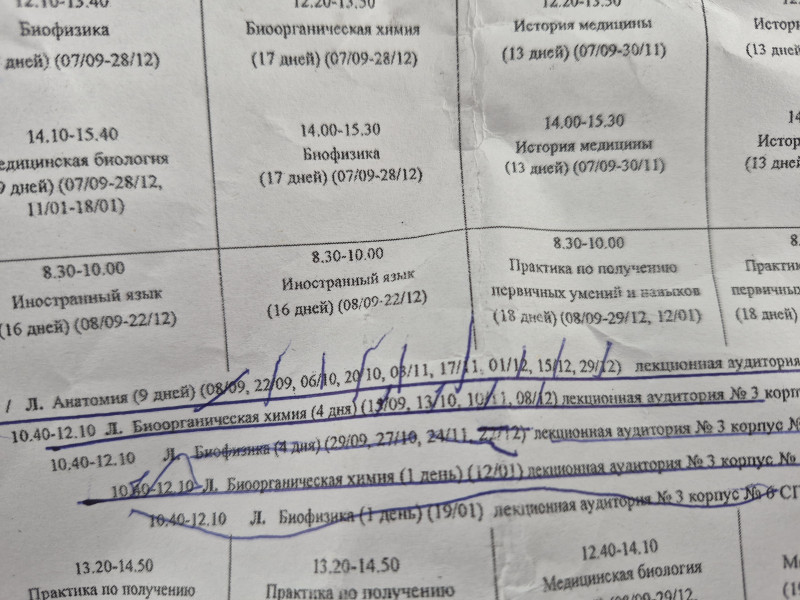 12.10-13.40
Биофизика
дней) (07/09-28/12)
12.20-13.50
Биоорганическая химия
(17 дней) (07/09-28/12)
12.20-13.50
История медицины
(13 дней) (07/09-30/11)
(13 дней
14.10-15.40
едицинская биология
9 дней) (07/09-28/12,
11/01-18/01)
14.00-15.30
Биофизика
(17 дней) (07/09-28/12)
14.00-15.30
История медицины
(13 дней) (07/09-30/11)
14
Истор
(13 дней
8.30-10.00
Иностранный язык
(16 дней) (08/09-22/12)
8.30-10.00
Иностранный язык
(16 дней) (08/09-22/12)
8.30-10.00
Практика по получению
первичных умений и навыков
(18 дней) (08/09-29/12, 12/01)
8.
Практик
первичных
(18 дней)
/ Л. Анатомия (9 дней) (08/09, 22/09, 06/10, 20/10, 03/11, 17/11, 01/12, 15/12, 29/12) лекционная аудитория
10.40-12.10 Л. Биоорганическая химия (4 дня) (15/09, 13/10, 10/11, 08/12) лекционная аудитория № 3 корп
10.40-12.10 Л. Биофизика (4 дня) (29/09, 27/10, 24/11, 22/12) лекционная аудитория № 3 корпус №
10.40-12.10 Л. Биоорганическая химия (1 день) (12/01) лекционная аудитория № 3 корпус №
10.40-12.10 Л. Биофизика (1 день) (19/01) лекционная аудитория № 3 корпус № 6 СП
13.20-14.50
Практика по получению
13.20-14.50
Практика по получению
12.40-14.10
Медицинская биология
(08/09-29/12,